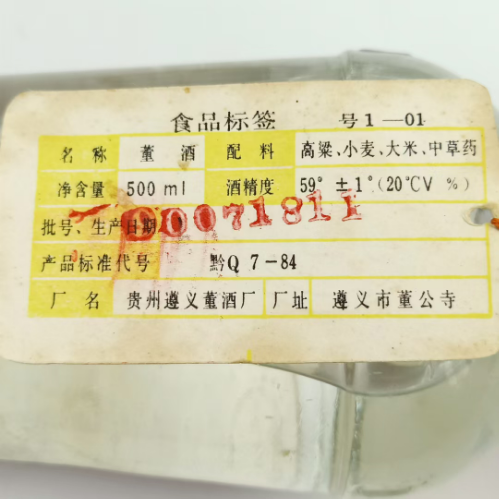 食品标签 号1—01
名称 董酒 配料 高粱、小麦、大米、中草药
净含量 500ml 酒精度 59°±1°(20°CV %)
批号、生产日期 00071811
产品标准代号 黔Q7-84
厂名 贵州遵义董酒厂 厂址 遵义市董公寺